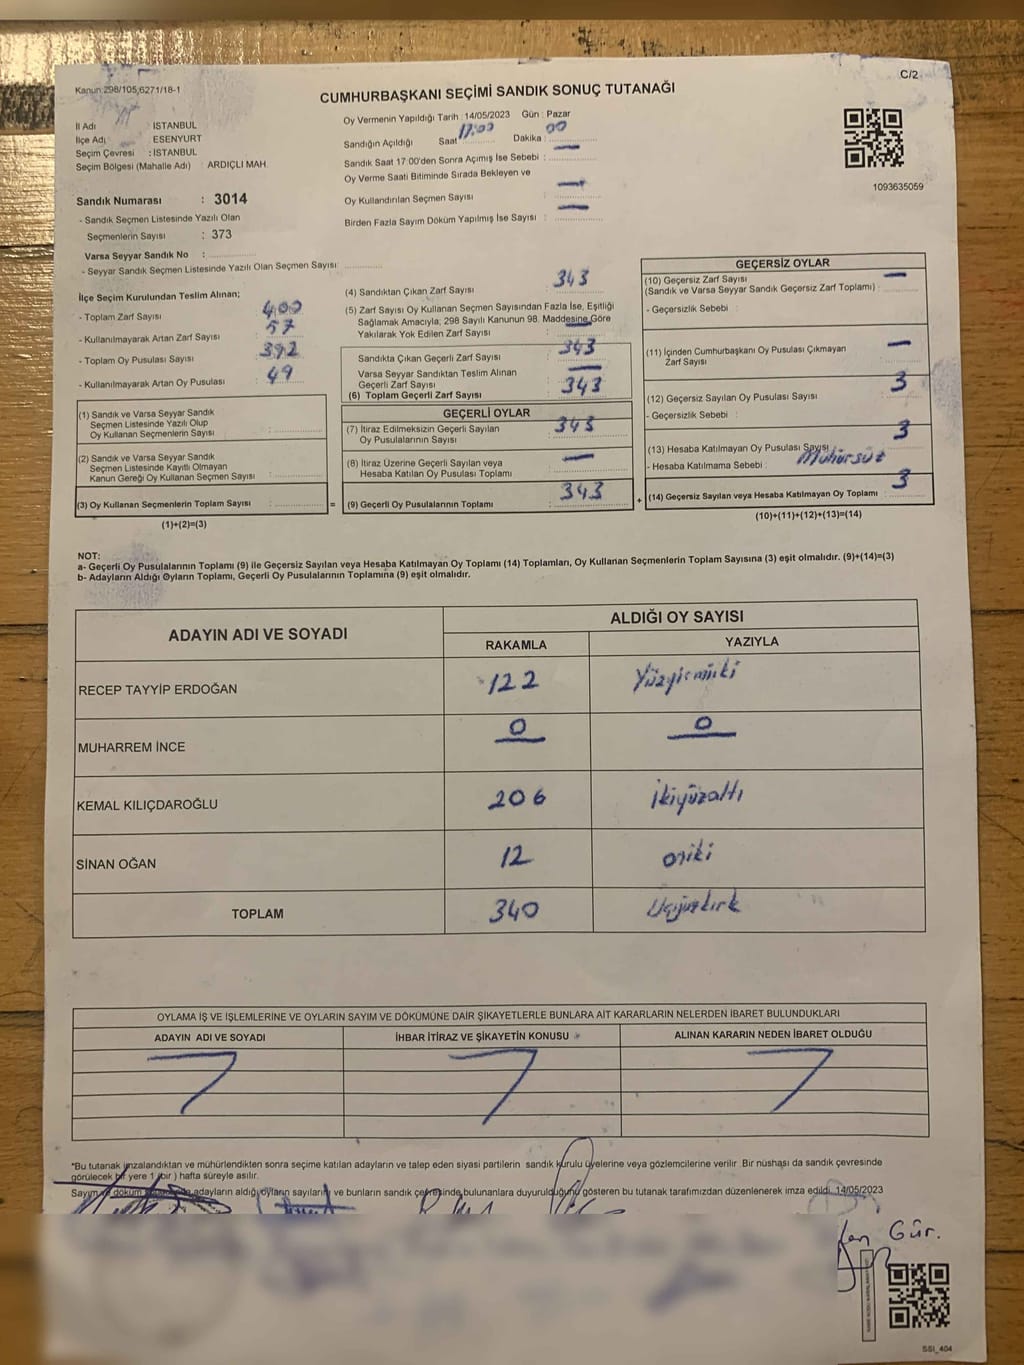 C/2
Kanun:298/105,6271/18-1
CUMHURBAŞKANI SEÇİMİ SANDIK SONUÇ TUTANAĞI
İl Adı : İSTANBUL
İlçe Adı : ESENYURT
Seçim Çevresi : İSTANBUL
Seçim Bölgesi (Mahalle Adı) ARDIÇLI MAH
Oy Vermenin Yapıldığı Tarih :14/05/2023 Gün : Pazar
Sandığın Açıldığı Saat 17:00 Dakika : 00
Sandık Saat 17:00'den Sonra Açımış İse Sebebi : —
Oy Verme Saati Bitiminde Sırada Bekleyen ve
Oy Kullandırılan Seçmen Sayısı : —
Birden Fazla Sayım Döküm Yapılmış İse Sayısı : —
1093635059
Sandık Numarası : 3014
- Sandık Seçmen Listesinde Yazılı Olan
Seçmenlerin Sayısı : 373
Varsa Seyyar Sandık No :
- Seyyar Sandık Seçmen Listesinde Yazılı Olan Seçmen Sayısı:
İlçe Seçim Kurulundan Teslim Alınan;
- Toplam Zarf Sayısı : 400
- Kullanılmayarak Artan Zarf Sayısı : 57
- Toplam Oy Pusulası Sayısı : 392
- Kullanılmayarak Artan Oy Pusulası : 49
(1) Sandık ve Varsa Seyyar Sandık
Seçmen Listesinde Yazılı Olup
Oy Kullanan Seçmenlerin Sayısı :
(2) Sandık ve Varsa Seyyar Sandık
Seçmen Listesinde Kayıtlı Olmayan
Kanun Gereği Oy Kullanan Seçmen Sayısı :
(3) Oy Kullanan Seçmenlerin Toplam Sayısı : =
(1)+(2)=(3)
(4) Sandıktan Çıkan Zarf Sayısı : 343
(5) Zarf Sayısı Oy Kullanan Seçmen Sayısından Fazla İse, Eşitliği
Sağlamak Amacıyla, 298 Sayılı Kanunun 98. Maddesine Göre
Yakılarak Yok Edilen Zarf Sayısı : —
Sandıkta Çıkan Geçerli Zarf Sayısı : 343
Varsa Seyyar Sandıktan Teslim Alınan
Geçerli Zarf Sayısı : —
(6) Toplam Geçerli Zarf Sayısı : 343
GEÇERLİ OYLAR
(7) İtiraz Edilmeksizin Geçerli Sayılan
Oy Pusulalarının Sayısı : 343
(8) İtiraz Üzerine Geçerli Sayılan veya
Hesaba Katılan Oy Pusulası Toplamı : —
(9) Geçerli Oy Pusulalarının Toplamı : 343 +
GEÇERSİZ OYLAR
(10) Geçersiz Zarf Sayısı
(Sandık ve Varsa Seyyar Sandık Geçersiz Zarf Toplamı) : —
- Geçersizlik Sebebi :
(11) İçinden Cumhurbaşkanı Oy Pusulası Çıkmayan
Zarf Sayısı : —
(12) Geçersiz Sayılan Oy Pusulası Sayısı : 3
- Geçersizlik Sebebi :
(13) Hesaba Katılmayan Oy Pusulası Sayısı 3
- Hesaba Katılmama Sebebi : Mühürsüz
(14) Geçersiz Sayılan veya Hesaba Katılmayan Oy Toplamı : 3
(10)+(11)+(12)+(13)=(14)
NOT:
a- Geçerli Oy Pusulalarının Toplamı (9) ile Geçersiz Sayılan veya Hesaba Katılmayan Oy Toplamı (14) Toplamları, Oy Kullanan Seçmenlerin Toplam Sayısına (3) eşit olmalıdır. (9)+(14)=(3)
b- Adayların Aldığı Oyların Toplamı, Geçerli Oy Pusulalarının Toplamına (9) eşit olmalıdır.
ADAYIN ADI VE SOYADI
ALDIĞI OY SAYISI
RAKAMLA YAZIYLA
RECEP TAYYİP ERDOĞAN 122 Yüzyirmiiki
MUHARREM İNCE 0 0
KEMAL KILIÇDAROĞLU 206 İkiyüzaltı
SİNAN OĞAN 12 oniki
TOPLAM 340 Üçyüzkırk
OYLAMA İŞ VE İŞLEMLERİNE VE OYLARIN SAYIM VE DÖKÜMÜNE DAİR ŞİKAYETLERLE BUNLARA AİT KARARLARIN NELERDEN İBARET BULUNDUKLARI
ADAYIN ADI VE SOYADI İHBAR İTİRAZ VE ŞİKAYETİN KONUSU ALINAN KARARIN NEDEN İBARET OLDUĞU
*Bu tutanak imzalandıktan ve mühürlendikten sonra seçime katılan adayların ve talep eden siyasi partilerin sandık kurulu üyelerine veya gözlemcilerine verilir. Bir nüshası da sandık çevresinde
görülecek bir yere 1 (bir) hafta süreyle asılır.
Sayım ve döküm adayların aldığı oyların sayılarını ve bunların sandık çevresinde bulunanlara duyurulduğunu gösteren bu tutanak tarafımızdan düzenlenerek imza edildi. 14/05/2023
Gür.
SSI_404